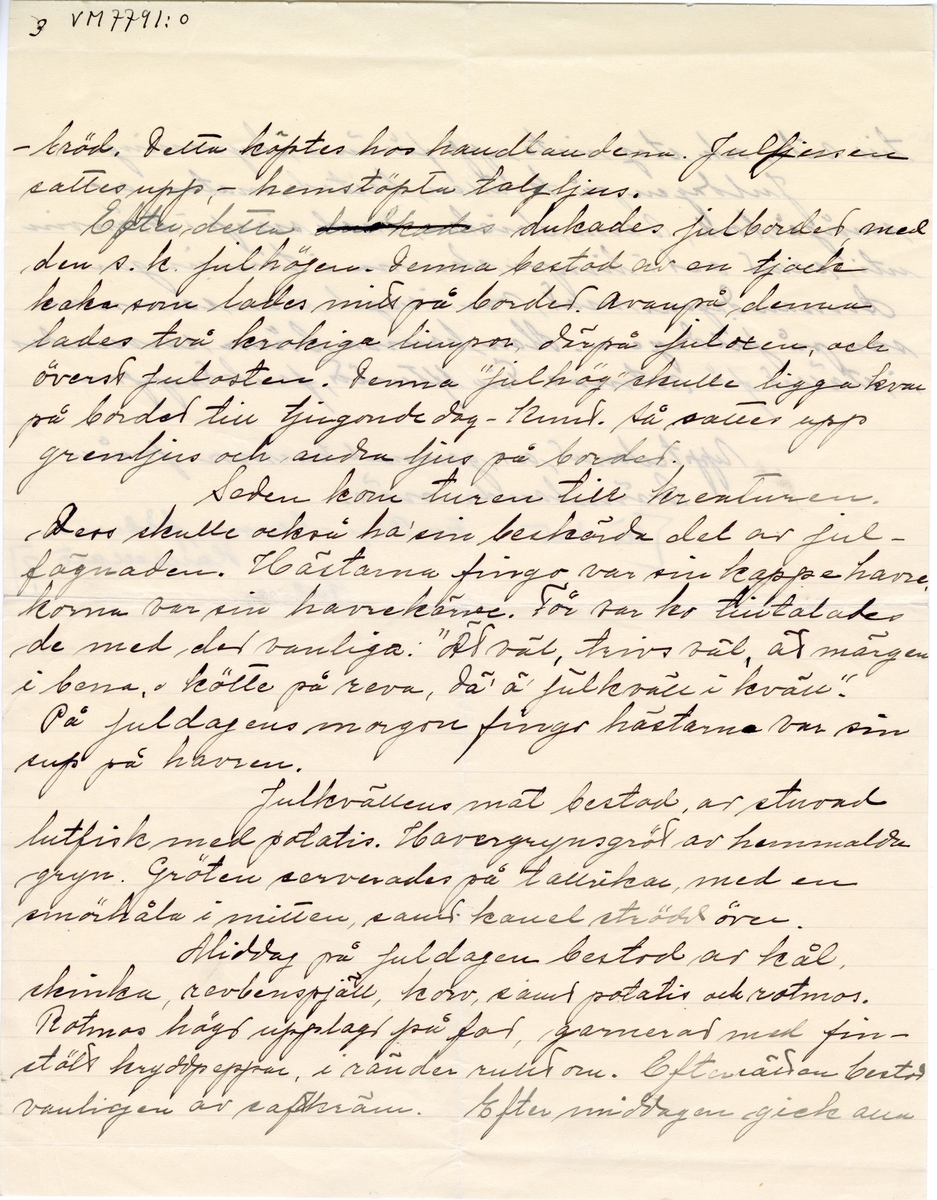 3 VM7791:0
-bröd. Detta köptes hos handlandena. Julljusen
sattes upp, - hemstöpta talgljus.
Efter detta dukades julbordet, med
den s.k. julhögen. Denna bestod av en tjock
kaka som lades mitt på bordet. Ovanpå denna
lades två krokiga limpor, därpå juloxen, och
överst julosten. Denna "julhög" skulle ligga kvar
på bordet till tjugondedag-Knut. Så sattes upp
grenljus och andra ljus på bordet.
Sedan kom turen till kreaturen.
Dess skulle också ha' sin beskärda del av jul-
fägnaden. Hästarna fingo var sin kappe havre,
korna var sin havrekärve. För var ko tilltalades
de med det vanliga: "Ät väl, trivs väl, ät märgen
i bena, o kötte på reva, dä' ä' julkväll i kväll".
På juldagens morgon fingo hästarna var sin
sup på havren.
Julkvällens mat bestod, av stuvad
lutfisk med potatis. Havergrynsgröt av hemmalda
gryn. Gröten serverades på tallrikar, med en
smörhåla i mitten, samt kanel strödd över.
Middag på juldagen bestod av kål,
skinka, revbenspjäll, korv, samt potatis och rotmos.
Rotmos högt upplagt på fat, garnerat med fin-
stött kryddpeppar, i ränder runt om. Efterrätten bestod
vanligen av saftkräm. Efter middagen gick ana